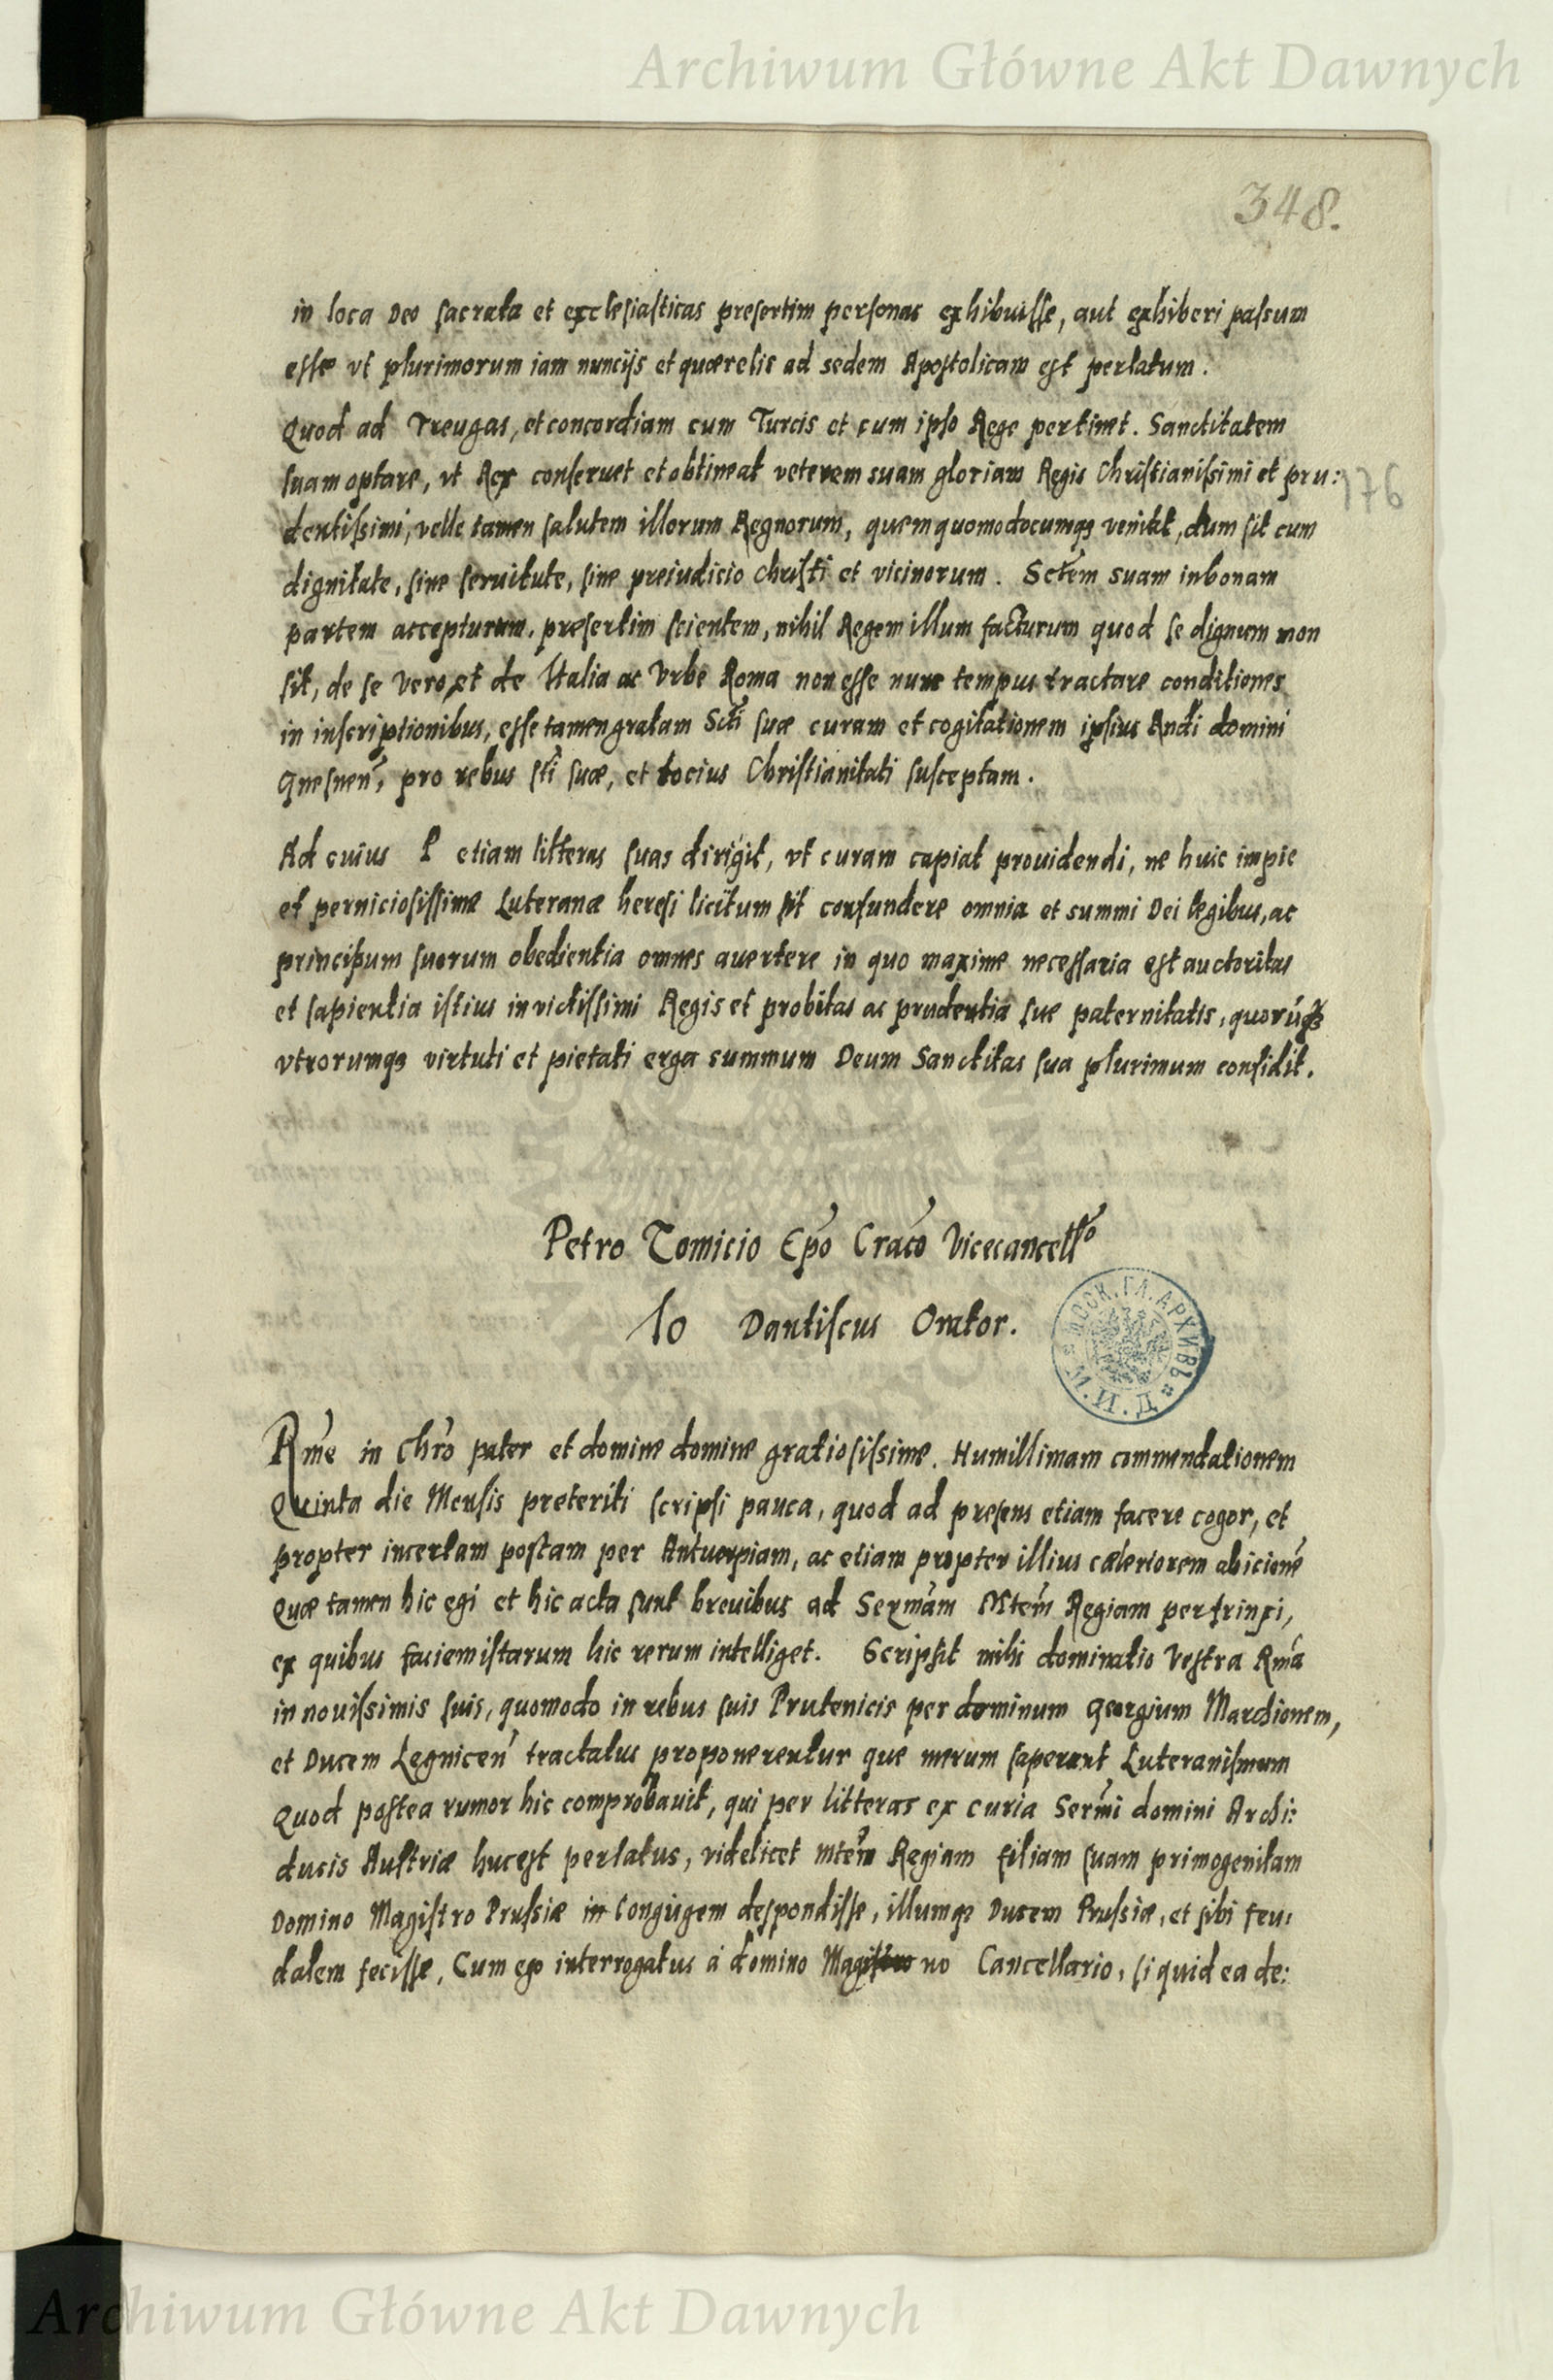 Archiwum Główne Akt Dawnych
348.
in loca Deo sacrata et ecclesiasticas presertim personas exhibuisse, aut exhiberi passum
esse vt plurimorum iam nuncijs et quærelis ad sedem Apostolicam est perlatum.
Quod ad Treugas, et concordiam cum Turcis et cum ipso Rege pertinet. Sanctitatem
suam optare, vt Rex conseruet et obtineat veterem suam gloriam Regis Christianissimi et pru:
176
dentissimi, velle tamen salutem illorum Regnorum, quem quomodocumqꝫ veniat, dum sit cum
dignitate, sine seruitute, sine preiudicio Christi et vicinorum. Sctem suam in bonam
partem accepturam, præsertim scientem, nihil Regem illum facturum quod se dignum non
sit, de se vero et de Italia ac Vrbe Roma non esse nunc tempus tractare conditiones
in inscriptionibus, esse tamen gratam Scti suæ curam et cogitationem ipsius Rndi domini
Gnesnen, pro rebus sti suæ, et tocius Christianitati susceptam.
Ad cuius P etiam litteras suas dirigit, vt curam capiat prouidendi, ne huic impie
et perniciosissimæ Luteranæ heresi licitum sit confundere omnia et summi Dei legibus, ac
principum suorum obedientia omnes auertere in quo maxime necessaria est auctoritas
et sapientia istius inuictissimi Regis et probitas ac prudentia sue paternitatis, quorūqꝫ
vtrorumqꝫ virtuti et pietati erga summum Deum Sanctitas sua plurimum confidit.
Petro Tomicio Epo Craco Vicecancello
Io Dantiscus Orator.
МОСК. ГЛ. АРХИВЪ М. И. Д.
Rme in Chro pater et domine domine gratiosissime. Humillimam commendationem
Quinta die Mensis preteriti scripsi pauca, quod ad presens etiam facere cogor, et
propter incertam postam per Antuerpiam, ac etiam propter illius cæleriorem abicionē
Quæ tamen hic egi et hic acta sunt breuibus ad Sermam Mtem Regiam perstrinxi,
ex quibus faciem istarum hic rerum intelliget. Scripsit mihi dominatio Vestra Rma
in nouissimis suis, quomodo in rebus suis Prutenicis per dominum Georgium Marchionem,
et Ducem Legnicen tractatus proponerentur que merum saperent Luteranismum
Quod postea rumor hic comprobauit, qui per litteras ex curia Sermi domini Archi:
ducis Austriæ huc est perlatus, videlicet mtem Regiam filiam suam primogenitam
Domino Magistro Prussiæ in Congiugem despondisse, illumqꝫ Ducem Prussiæ, et sibi feu:
dalem fecisse, Cum ego interrogatus á domino Magistro no Cancellario, si quid ea de:
Archiwum Główne Akt Dawnych